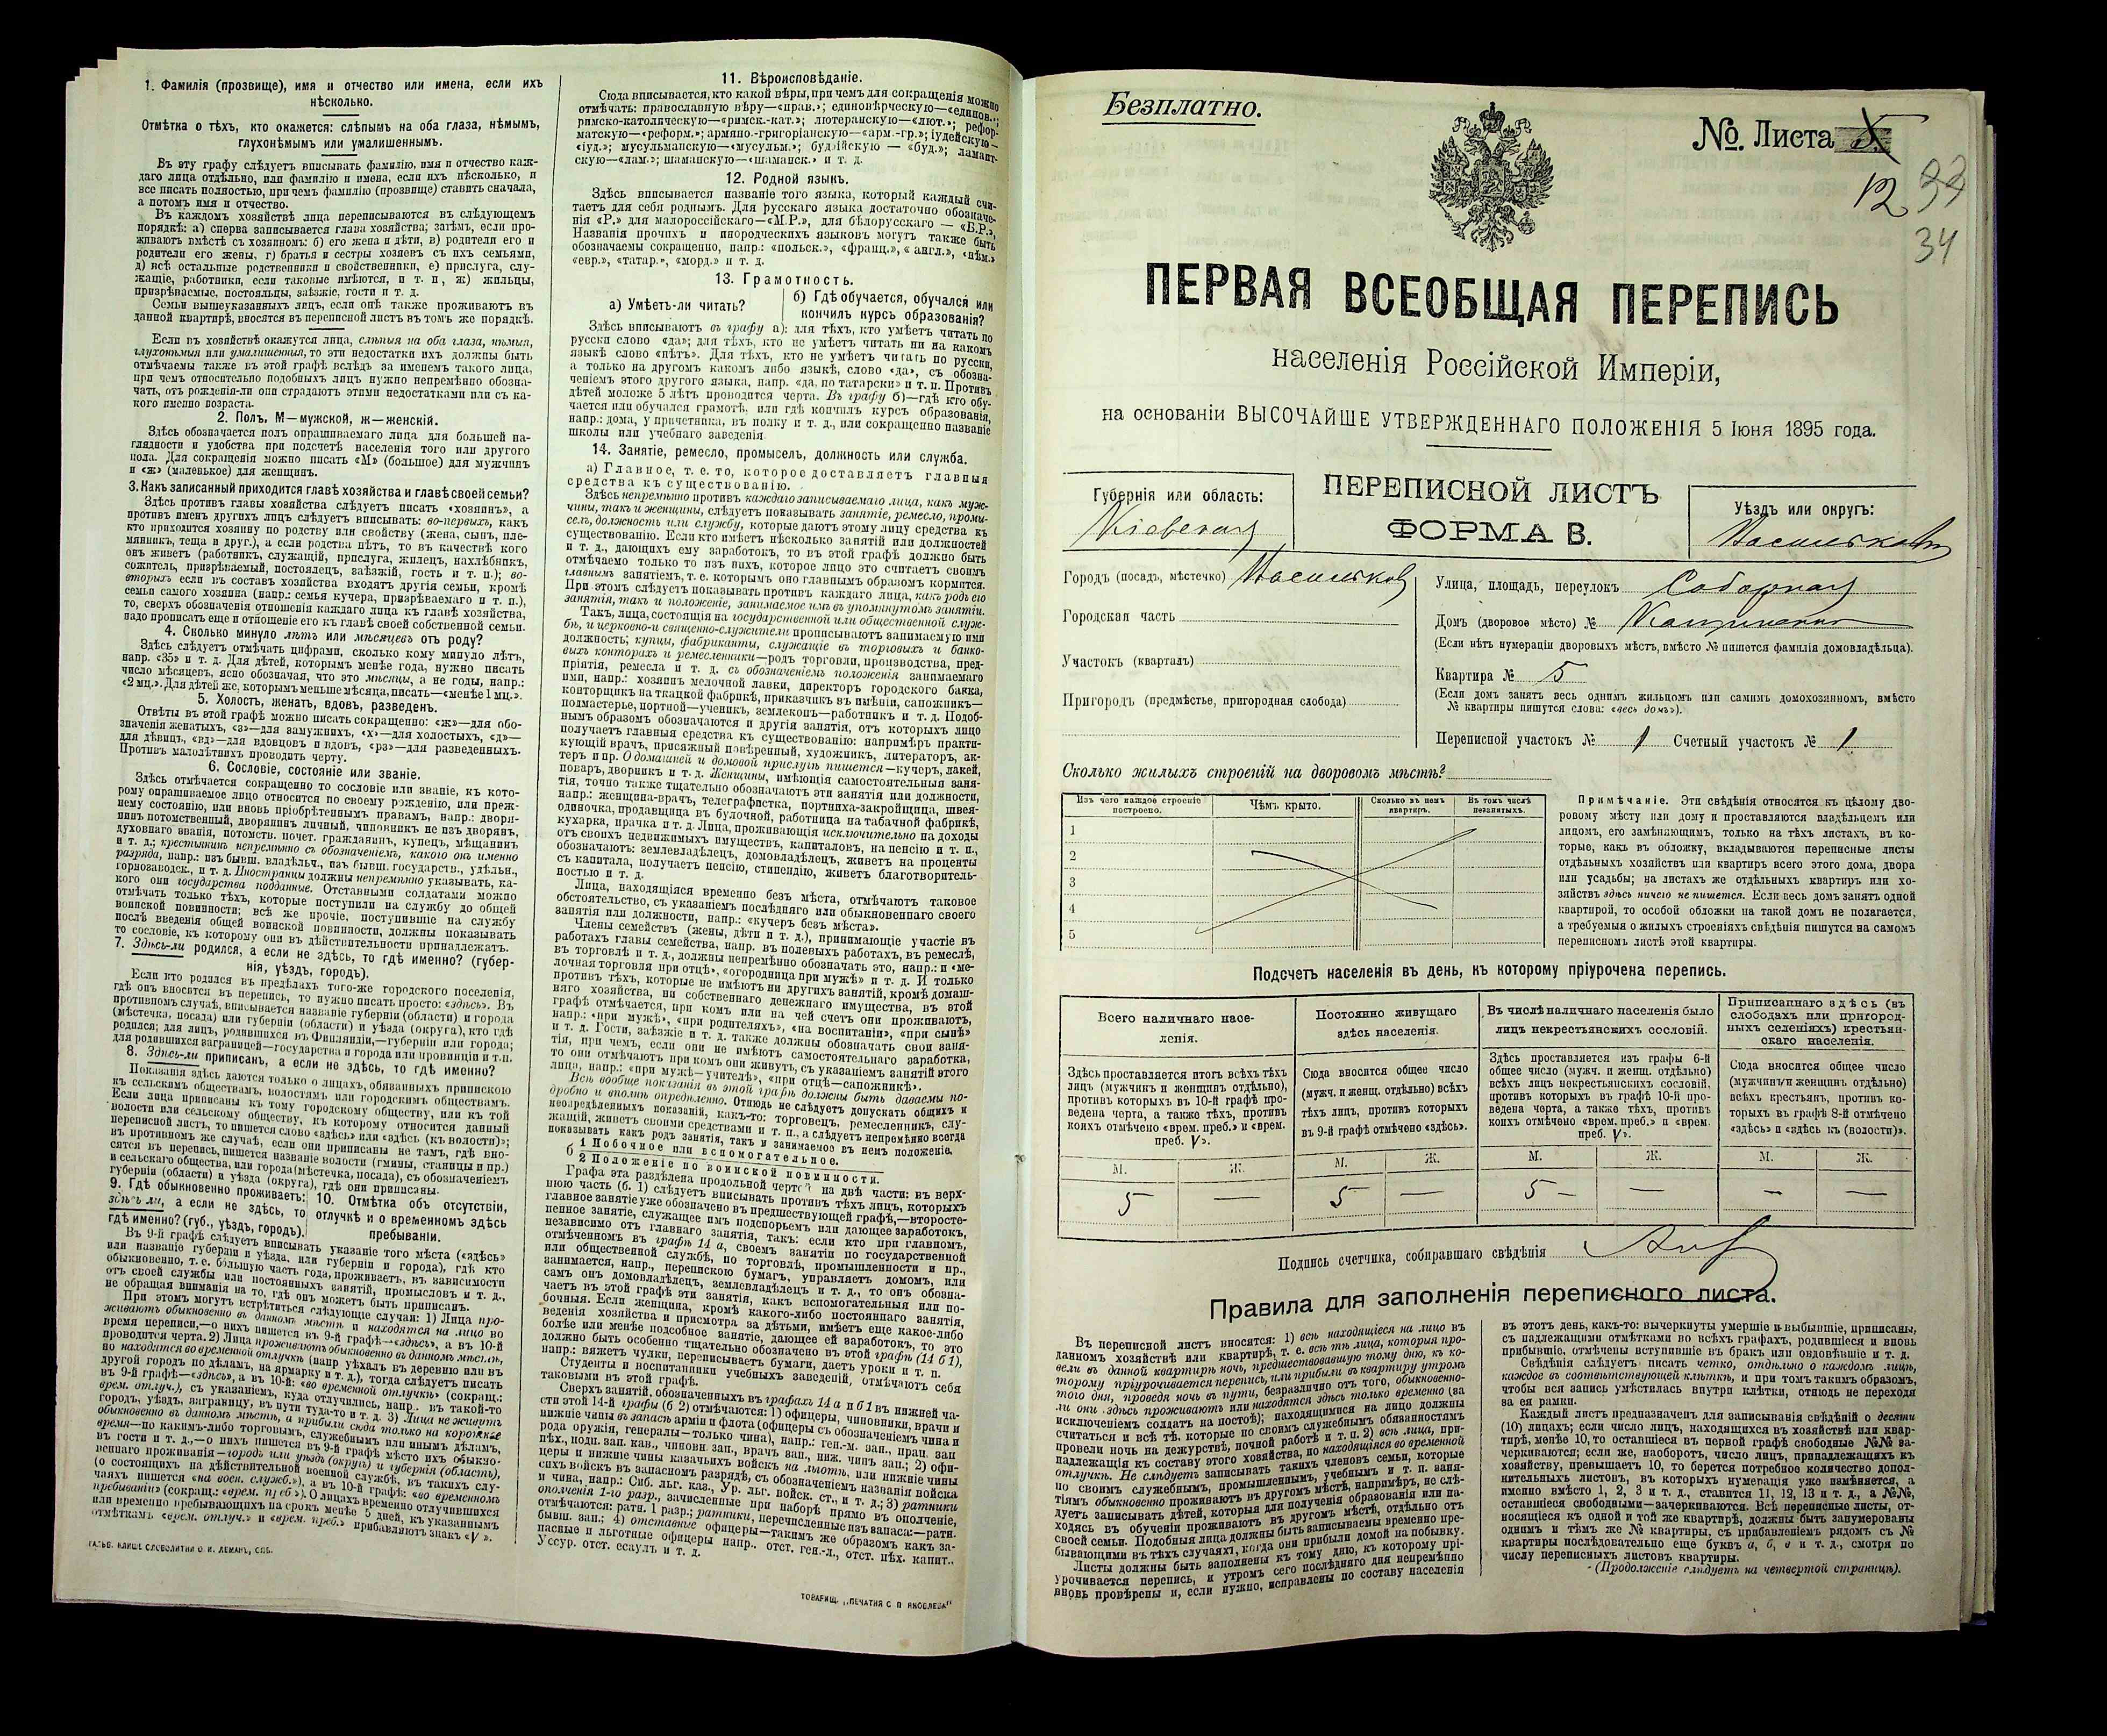 1. Фамилія (прозвище), имя и отчество или имена, если ихъ
нѣсколько.
Отмѣтка о тѣхъ, кто окажется: слѣпымъ на оба глаза, нѣмымъ,
глухонѣмымъ или умалишеннымъ.
Въ эту графу слѣдуетъ вписывать фамилію, имя и отчество каж-
даго лица отдѣльно, или фамилію и имена, если ихъ нѣсколько, и
все писать полностью, при чемъ фамилію (прозвище) ставить сначала,
а потомъ имя и отчество.
Въ каждомъ хозяйствѣ лица переписываются въ слѣдующемъ
порядкѣ: а) сперва записывается глава хозяйства; затѣмъ, если про-
живаютъ вмѣстѣ съ хозяиномъ: б) его жена и дѣти, в) родители его и
родители его жены, г) братья и сестры хозяевъ съ ихъ семьями,
д) всѣ остальные родственники и свойственники, е) прислуга, слу-
жащіе, работники, если таковые имѣются, и т. п., ж) жильцы,
призрѣваемые, постояльцы, заѣзжіе, гости и т. д.
Семьи вышеуказанныхъ лицъ, если онѣ также проживаютъ въ
данной квартирѣ, вносятся въ переписной листъ въ томъ же порядкѣ.
Если въ хозяйствѣ окажутся лица, слѣпыя на оба глаза, нѣмыя,
глухонѣмыя или умалишенныя, то эти недостатки ихъ должны быть
отмѣчаемы также въ этой графѣ вслѣдъ за именемъ такого лица,
при чемъ относительно подобныхъ лицъ нужно непремѣнно обозна-
чать, отъ рожденія-ли они страдаютъ этими недостатками или съ ка-
кого именно возраста.
2. Полъ, М—мужской, ж—женскій.
Здѣсь обозначается полъ опрашиваемаго лица для большей на-
глядности и удобства при подсчетѣ населенія того или другого
пола. Для сокращенія можно писать «М» (большое) для мужчинъ
и «ж» (маленькое) для женщинъ.
3. Какъ записанный приходится главѣ хозяйства и главѣ своей семьи?
Здѣсь противъ главы хозяйства слѣдуетъ писать «хозяинъ», а
противъ именъ другихъ лицъ слѣдуетъ вписывать: во-первыхъ, какъ
кто приходится хозяину по родству или свойству (жена, сынъ, пле-
мянникъ, теща и друг.), а если родства нѣтъ, то въ качествѣ кого
онъ живетъ (работникъ, служащій, прислуга, жилецъ, нахлѣбникъ,
сожитель, призрѣваемый, постоялецъ, заѣзжій, гость и т. п.); во-
вторыхъ если въ составъ хозяйства входятъ другія семьи, кромѣ
семьи самого хозяина (напр.: семья кучера, призрѣваемаго и т. п.),
то, сверхъ обозначенія отношенія каждаго лица къ главѣ хозяйства,
надо прописать еще и отношеніе его къ главѣ своей собственной семьи.
4. Сколько минуло лѣтъ или мѣсяцевъ отъ роду?
Здѣсь слѣдуетъ отмѣчать цифрами, сколько кому минуло лѣтъ,
напр. «35» и т. д. Для дѣтей, которымъ менѣе года, нужно писать
число мѣсяцевъ, ясно обозначая, что это мѣсяцы, а не годы, напр.:
«2 мц.». Для дѣтей же, которымъ меньше мѣсяца, писать—«менѣе 1 мц.».
5. Холостъ, женатъ, вдовъ, разведенъ.
Отвѣты въ этой графѣ можно писать сокращенно: «ж»—для обо-
значенія женатыхъ, «з»—для замужнихъ, «х»—для холостыхъ, «д»—
для дѣвицъ, «вд»—для вдовцовъ и вдовъ, «рз»—для разведенныхъ.
Противъ малолѣтнихъ проводить черту.
6. Сословіе, состояніе или званіе.
Здѣсь отмѣчается сокращенно то сословіе или званіе, къ кото-
рому опрашиваемое лицо относится по своему рожденію, или преж-
нему состоянію, или вновь пріобрѣтеннымъ правамъ, напр.: дворя-
нинъ потомственный, дворянинъ личный, чиновникъ не изъ дворянъ,
духовнаго званія, потомств. почет. гражданинъ, купецъ, мѣщанинъ
и т. д.; крестьянинъ непремѣнно съ обозначеніемъ, какого онъ именно
разряда, напр.: изъ бывш. владѣльч., изъ бывш. государств., удѣльн.,
горнозаводск., и т. д. Иностранцы должны непремѣнно указывать, ка-
кого они государства подданные. Отставными солдатами можно
отмѣчать только тѣхъ, которые поступили на службу до общей
воинской повинности; всѣ же прочіе, поступившіе на службу
послѣ введенія общей воинской повинности, должны показывать
то сословіе, къ которому они въ дѣйствительности принадлежатъ.
7. Здѣсь-ли родился, а если не здѣсь, то гдѣ именно? (губер-
нія, уѣздъ, городъ).
Если кто родился въ предѣлахъ того-же городского поселенія,
гдѣ онъ вносится въ перепись, то нужно писать просто: «здѣсь». Въ
противномъ случаѣ, вписывается названіе губерніи (области) и города
(мѣстечка, посада) или губерніи (области) и уѣзда (округа), кто гдѣ
родился; для лицъ, родившихся въ Финляндіи,—губерніи или города;
для родившихся заграницей—государства и города или провинціи и т.п.
8. Здѣсь-ли приписанъ, а если не здѣсь, то гдѣ именно?
Показанія здѣсь даются только о лицахъ, обязанныхъ припискою
къ сельскимъ обществамъ, волостямъ или городскимъ обществамъ.
Если лица приписаны къ тому городскому обществу, или къ той
волости или сельскому обществу, къ которому относится данный
переписной листъ, то пишется слово «здѣсь» или «здѣсь (къ волости)»;
въ противномъ же случаѣ, если они приписаны не тамъ, гдѣ вно-
сятся въ перепись, пишется названіе волости (гмины, станицы и пр.)
и сельскаго общества, или города (мѣстечка, посада), съ обозначеніемъ
губерніи (области) и уѣзда (округа), гдѣ они приписаны.
9. Гдѣ обыкновенно проживаетъ:
здѣсь ли, а если не здѣсь, то
гдѣ именно? (губ., уѣздъ, городъ).
10. Отмѣтка объ отсутствіи,
отлучкѣ и о временномъ здѣсь
пребываніи.
Въ 9-й графѣ слѣдуетъ вписывать указаніе того мѣста («здѣсь»
или названіе губерніи и уѣзда, или губерніи и города), гдѣ кто
обыкновенно, т. е. большую часть года, проживаетъ, въ зависимости
отъ своей службы или постоянныхъ занятій, промысловъ и т. д.,
не обращая вниманія на то, гдѣ онъ можетъ быть приписанъ.
При этомъ могутъ встрѣтиться слѣдующіе случаи: 1) Лица про-
живаютъ обыкновенно въ данномъ мѣстѣ и находятся на лицо во
время переписи,—о нихъ пишется въ 9-й графѣ—«здѣсь», а въ 10-й
проводится черта. 2) Лица проживаютъ обыкновенно въ данномъ мѣстѣ,
но находятся во временной отлучкѣ (напр уѣхалъ въ деревню или въ
другой городъ по дѣламъ, на ярмарку и т. д.), тогда слѣдуетъ писать
въ 9-й графѣ—«здѣсь», а въ 10-й: «во временной отлучкѣ» (сокращ.:
врем. отлуч.), съ указаніемъ, куда отлучились, напр.. въ такой-то
городъ, уѣздъ, заграницу, въ пути туда-то и т. д. 3) Лица не живутъ
обыкновенно въ данномъ мѣстѣ, а прибыли сюда только на короткое
время—по какимъ-либо торговымъ, служебнымъ или инымъ дѣламъ,
въ гости и т. д.,—о нихъ пишется въ 9-й графѣ мѣсто ихъ обыкно-
веннаго проживанія—городъ или уѣздъ (округъ) и губернія (область),
(о состоящихъ на дѣйствительной военной службѣ, въ такихъ слу-
чаяхъ пишется «на воен. служб.»), а въ 10-й графѣ: «во временномъ
пребываніи» (сокращ.: «врем. преб.»). О лицахъ временно отлучившихся
или временно пребывающихъ на срокъ менѣе 5 дней, къ указаннымъ
отмѣткамъ «врем. отлуч.» и «врем. преб.» прибавляютъ знакъ «V».
ГАЛЬВ. КЛИШЕ СЛОВОЛИТНИ О. И. ЛЕМАНЪ, СПБ.
11. Вѣроисповѣданіе.
Сюда вписывается, кто какой вѣры, при чемъ для сокращенія можно
отмѣчать: православную вѣру—«прав.»; единовѣрческую—«единов.»;
римско-католическую—«римск.-кат.»; лютеранскую—«лют.»; рефор-
матскую—«реформ.»; армяно-григоріанскую—«арм.-гр.»; іудейскую—
«іуд.»; мусульманскую—«мусульм.»; буддійскую — «буд.»; ламаит-
скую—«лам.»; шаманскую—«шаманск.» и т. д.
12. Родной языкъ.
Здѣсь вписывается названіе того языка, который каждый счи-
таетъ для себя роднымъ. Для русскаго языка достаточно обозначе-
нія «Р.» для малороссійскаго—«М.Р.», для бѣлорусскаго — «Б.Р.»,
Названія прочихъ и инородческихъ языковъ могутъ также быть
обозначаемы сокращенно, напр.: «польск.», «франц.», «англ.», «нѣм.»
«евр.», «татар.», «морд.» и т. д.
13. Грамотность.
а) Умѣетъ-ли читать?
б) Гдѣ обучается, обучался или
кончилъ курсъ образованія?
Здѣсь вписываютъ въ графу а): для тѣхъ, кто умѣетъ читать по
русски слово «да»; для тѣхъ, кто не умѣетъ читать ни на какомъ
языкѣ слово «нѣтъ». Для тѣхъ, кто не умѣетъ читать по русски,
а только на другомъ какомъ либо языкѣ, слово «да», съ обозна-
ченіемъ этого другого языка, напр. «да, по татарски» и т. п. Противъ
дѣтей моложе 5 лѣтъ проводится черта. Въ графу б)—гдѣ кто обу-
чается или обучался грамотѣ, или гдѣ кончилъ курсъ образованія,
напр.: дома, у причетника, въ полку и т. д., или сокращенно названіе
школы или учебнаго заведенія
14. Занятіе, ремесло, промыселъ, должность или служба.
а) Главное, т. е. то, которое доставляетъ главныя
средства къ существованію.
Здѣсь непремѣнно противъ каждаго записываемаго лица, какъ муж-
чины, такъ и женщины, слѣдуетъ показывать занятіе, ремесло, промы-
селъ, должность или службу, которые даютъ этому лицу средства къ
существованію. Если кто имѣетъ нѣсколько занятій или должностей
и т. п., дающихъ ему заработокъ, то въ этой графѣ должно быть
отмѣчаемо только то изъ нихъ, которое лицо это считаетъ своимъ
главнымъ занятіемъ, т. е. которымъ оно главнымъ образомъ кормится.
При этомъ слѣдуетъ показывать противъ каждаго лица, какъ родъ его
занятія, такъ и положеніе, занимаемое имъ въ упомянутомъ занятіи.
Такъ, лица, состоящія на государственной или общественной служ-
бѣ, и церковно-и священно-служители прописываютъ занимаемую ими
должность; купцы, фабриканты, служащіе въ торговыхъ и банко-
выхъ конторахъ и ремесленники—родъ торговли, производства, пред-
пріятія, ремесла и т. д. съ обозначеніемъ положенія занимаемаго
ими, напр.: хозяинъ мелочной лавки, директоръ городского банка,
конторщикъ на ткацкой фабрикѣ, приказчикъ въ имѣніи, сапожникъ—
подмастерье, портной—ученикъ, землекопъ—работникъ и т. д. Подоб-
нымъ образомъ обозначаются и другія занятія, отъ которыхъ лицо
получаетъ главныя средства къ существованію: напримѣръ практи-
кующій врачъ, присяжный повѣренный, художникъ, литераторъ, ак-
теръ и пр. О домашней и домовой прислугѣ пишется—кучеръ, лакей,
поваръ, дворникъ и т. д. Женщины, имѣющія самостоятельныя заня-
тія, точно также тщательно обозначаютъ эти занятія или должности,
напр.: женщина-врачъ, телеграфистка, портниха-закройщица, швея-
одиночка, продавщица въ булочной, работница на табачной фабрикѣ,
кухарка, прачка и т. д. Лица, проживающія исключительно на доходы
отъ своихъ недвижимыхъ имуществъ, капиталовъ, на пенсію и т. п.,
обозначаютъ: землевладѣлецъ, домовладѣлецъ, живетъ на проценты
съ капитала, получаетъ пенсію, стипендію, живетъ благотворитель-
ностью и т. д.
Лица, находящіяся временно безъ мѣста, отмѣчаютъ таковое
обстоятельство, съ указаніемъ послѣдняго или обыкновеннаго своего
занятія или должности, напр.: «кучеръ безъ мѣста».
Члены семействъ (жены, дѣти и т. д.), принимающіе участіе въ
работахъ главы семейства, напр. въ полевыхъ работахъ, въ ремеслѣ,
въ торговлѣ и т. д., должны непремѣнно обозначать это, напр.: и «ме-
лочная торговля при отцѣ», «огородница при мужѣ» и т. д. И только
противъ тѣхъ, которые не имѣютъ ни другихъ занятій, кромѣ домаш-
няго хозяйства, ни собственнаго денежнаго имущества, въ этой
графѣ отмѣчается, при комъ или на чей счетъ они проживаютъ,
напр.: «при мужѣ», «при родителяхъ», «на воспитаніи», «при сынѣ»
и т. д. Гости, заѣзжіе и т. д. также должны обозначать свои заня-
тія, при чемъ, если они не имѣютъ самостоятельнаго заработка,
то они отмѣчаютъ при комъ они живутъ, съ указаніемъ занятій этого
лица, напр.: «при мужѣ—учителѣ», «при отцѣ—сапожникѣ».
Всѣ вообще показанія въ этой графѣ должны быть даваемы по-
дробно и вполнѣ опредѣленно. Отнюдь не слѣдуетъ допускать общихъ и
неопредѣленныхъ показаній, какъ-то: торговецъ, ремесленникъ, слу-
жащій, живетъ своими средствами и т. п., а слѣдуетъ непремѣнно всегда
показывать какъ родъ занятія, такъ и занимаемое въ немъ положеніе.
б 1 Побочное или вспомогательное.
2 Положеніе по воинской повинности.
Графа эта раздѣлена продольной чертой на двѣ части: въ верх-
нюю часть (б. 1) слѣдуетъ вписывать противъ тѣхъ лицъ, которыхъ
главное занятіе уже обозначено въ предшествующей графѣ,—второсте-
пенное занятіе, служащее имъ подспорьемъ или дающее заработокъ,
независимо отъ главнаго занятія, такъ: если кто при главномъ,
отмѣченномъ въ графѣ 14 а, своемъ занятіи по государственной
или общественной службѣ, по торговлѣ, промышленности и пр.,
занимается, напр., перепискою бумагъ, управляетъ домомъ, или
самъ онъ домовладѣлецъ, землевладѣлецъ и т. д., то онъ обозна-
чаетъ въ этой графѣ эти занятія, какъ вспомогательныя или по-
бочныя. Если женщина, кромѣ какого-либо постояннаго занятія,
веденія хозяйства и присмотра за дѣтьми, имѣетъ еще какое-либо
болѣе или менѣе подсобное занятіе, дающее ей заработокъ, то это
должно быть особенно тщательно обозначено въ этой графѣ (14 б 1),
напр.: вяжетъ чулки, переписываетъ бумаги, даетъ уроки и т. п.
Студенты и воспитанники учебныхъ заведеній, отмѣчаютъ себя
таковыми въ этой графѣ.
Сверхъ занятій, обозначенныхъ въ графахъ 14 а и б 1 въ нижней ча-
сти этой 14-й графы (б 2) отмѣчаются: 1) офицеры, чиновники, врачи и
нижніе чины въ запасѣ арміи и флота (офицеры съ обозначеніемъ чина и
рода оружія, генералы—только чина), напр.: ген-м. зап., прап. зап
пѣх., подп. зап. кав., чиновн. зап., врачъ зап., ниж. чинъ зап.; 2) офи-
церы и нижніе чины казачьихъ войскъ на льготѣ, или нижніе чины
сихъ войскъ въ запасномъ разрядѣ, съ обозначеніемъ названія войска
и чина, напр.: Сиб. льг. каз., Ур. льг. войск. ст., и т. д.; 3) ратники
ополченія 1-го разр., зачисленные при наборѣ прямо въ ополченіе,
отмѣчаются: ратн. 1 разр.; ратники, перечисленные изъ запаса:—ратн.
бывш. зап.; 4) отставные офицеры—такимъ же образомъ какъ за-
пасные и льготные офицеры напр.. отст. ген.-л., отст. пѣх. капит.,
Уссур. отст. есаулъ и т. д.
ТОВАРИЩ. „ПЕЧАТНЯ С П ЯКОВЛЕВА“
Безплатно.
№. Листа 5
12 33
34
ПЕРВАЯ ВСЕОБЩАЯ ПЕРЕПИСЬ
населенія Россійской Имперіи,
на основаніи ВЫСОЧАЙШЕ УТВЕРЖДЕННАГО ПОЛОЖЕНІЯ 5 Іюня 1895 года.
Губернія или область:
Кіевская
ПЕРЕПИСНОЙ ЛИСТЪ
ФОРМА В.
Уѣздъ или округъ:
Васильковъ
Городъ (посадъ, мѣстечко) Васильковъ
Городская часть
Участокъ (кварталъ)
Пригородъ (предмѣстье, пригородная слобода)
Улица, площадь, переулокъ Соборная
Домъ (дворовое мѣсто) №
(Если нѣтъ нумераціи дворовыхъ мѣстъ, вмѣсто № пишется фамилія домовладѣльца).
Квартира № 5
(Если домъ занятъ весь однимъ жильцомъ или самимъ домохозяиномъ, вмѣсто
№ квартиры пишутся слова: «весь домъ»).
Переписной участокъ № 1 Счетный участокъ № 1
Сколько жилыхъ строеній на дворовомъ мѣстѣ?
Изъ чего каждое строеніе построено.
Чѣмъ крыто.
Сколько въ немъ квартиръ.
Въ томъ числѣ незанятыхъ.
1
2
3
4
5
Примѣчаніе. Эти свѣдѣнія относятся къ цѣлому дво-
ровому мѣсту или дому и проставляются владѣльцемъ или
лицомъ, его замѣняющимъ, только на тѣхъ листахъ, въ ко-
торые, какъ въ обложку, вкладываются переписные листы
отдѣльныхъ хозяйствъ или квартиръ всего этого дома, двора
или усадьбы; на листахъ же отдѣльныхъ квартиръ или хо-
зяйствъ здѣсь ничего не пишется. Если весь домъ занятъ одной
квартирой, то особой обложки на такой домъ не полагается,
а требуемыя о жилыхъ строеніяхъ свѣдѣнія пишутся на самомъ
переписномъ листѣ этой квартиры.
Подсчетъ населенія въ день, къ которому пріурочена перепись.
Всего наличнаго насе-
ленія.
Постоянно живущаго
здѣсь населенія.
Въ числѣ наличнаго населенія было
лицъ некрестьянскихъ сословій.
Приписаннаго здѣсь (въ
слободахъ или пригород-
ныхъ селеніяхъ) крестьян-
скаго населенія.
Здѣсь проставляется итогъ всѣхъ тѣхъ
лицъ (мужчинъ и женщинъ отдѣльно),
противъ которыхъ въ 10-й графѣ про-
ведена черта, а также тѣхъ, противъ
коихъ отмѣчено «врем. преб.» и «врем.
преб. V».
Сюда вносится общее число
(мужч. и женщ. отдѣльно) всѣхъ
тѣхъ лицъ, противъ которыхъ
въ 9-й графѣ отмѣчено «здѣсь».
Здѣсь проставляется изъ графы 6-й
общее число (мужч. и женщ. отдѣльно)
всѣхъ лицъ некрестьянскихъ сословій,
противъ которыхъ въ графѣ 10-й про-
ведена черта, а также тѣхъ, противъ
коихъ отмѣчено «врем. преб.» и «врем.
преб. V».
Сюда вносится общее число
(мужчинъ и женщинъ отдѣльно)
всѣхъ крестьянъ, противъ ко-
торыхъ въ графѣ 8-й отмѣчено
«здѣсь» и «здѣсь къ (волости)».
М. Ж. М. Ж. М. Ж. М. Ж.
5 — 5 — 5 — — — —
Подпись счетчика, собиравшаго свѣдѣнія
Правила для заполненія переписного листа.
Въ переписной листъ вносятся: 1) всѣ находящіеся на лицо въ
данномъ хозяйствѣ или квартирѣ, т. е. всѣ тѣ лица, которыя про-
вели въ данной квартирѣ ночь, предшествовавшую тому дню, къ ко-
торому пріурочивается перепись, или прибыли въ квартиру утромъ
того дня, проведя ночь въ пути, безразлично отъ того, обыкновенно-
ли они здѣсь проживаютъ или находятся здѣсь только временно (за
исключеніемъ солдатъ на постоѣ); находящимися на лицо должны
считаться и всѣ тѣ. которые по своимъ служебнымъ обязанностямъ
провели ночь на дежурствѣ, ночной работѣ и т. п. 2) всѣ лица, при-
надлежащія къ составу этого хозяйства, но находящіяся во временной
отлучкѣ. Не слѣдуетъ записывать такихъ членовъ семьи, которые
по своимъ служебнымъ, промышленнымъ, учебнымъ и т. п. заня-
тіямъ обыкновенно проживаютъ въ другомъ мѣстѣ, напримѣръ, не слѣ-
дуетъ записывать дѣтей, которыя для полученія образованія или на-
ходясь въ обученіи проживаютъ въ другомъ мѣстѣ, отдѣльно отъ
своей семьи. Подобныя лица должны быть записываемы временно пре-
бывающими въ тѣхъ случаяхъ, когда они прибыли домой на побывку.
Листы должны быть заполнены къ тому дню, къ которому прі-
урочивается перепись, и утромъ сего послѣдняго дня непремѣнно
вновь провѣрены и, если нужно, исправлены по составу населенія
въ этотъ день, какъ-то: вычеркнуты умершіе и выбывшіе, приписаны,
съ надлежащими отмѣтками во всѣхъ графахъ, родившіеся и вновь
прибывшіе, отмѣчены вступившіе въ бракъ или овдовѣвшіе и т. д.
Свѣдѣнія слѣдуетъ писать четко, отдѣльно о каждомъ лицѣ,
каждое въ соотвѣтствующей клѣткѣ, и при томъ такимъ образомъ,
чтобы вся запись умѣстилась внутри клѣтки, отнюдь не переходя
за ея рамки.
Каждый листъ предназначенъ для записыванія свѣдѣній о десяти
(10) лицахъ; если число лицъ, находящихся въ хозяйствѣ или квар-
тирѣ, менѣе 10, то оставшіеся въ первой графѣ свободные №№ за-
черкиваются; если же, наоборотъ, число лицъ, принадлежащихъ къ
хозяйству, превышаетъ 10, то берется потребное количество допол-
нительныхъ листовъ, въ которыхъ нумерація уже измѣняется, а
именно вмѣсто 1, 2, 3 и т. д., ставится 11, 12, 13 и т. д., а №№,
оставшіеся свободными—зачеркиваются. Всѣ переписные листы, от-
носящіеся къ одной и той же квартирѣ, должны быть занумерованы
однимъ и тѣмъ же № квартиры, съ прибавленіемъ рядомъ съ №
квартиры послѣдовательно еще буквъ а, б, в и т. д., смотря по
числу переписныхъ листовъ квартиры.
(Продолженіе слѣдуетъ на четвертой страницѣ).